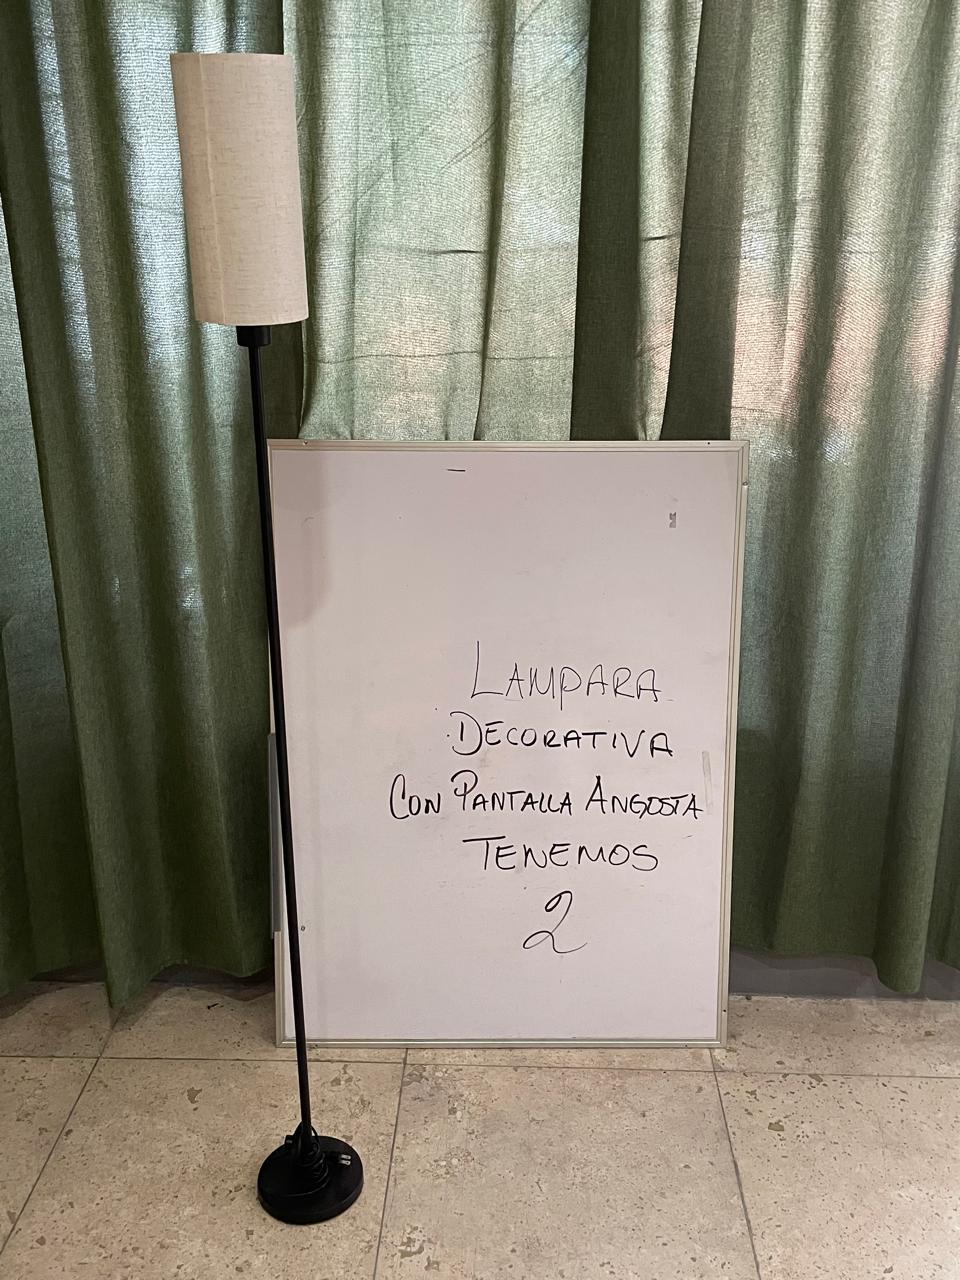 LAMPARA
DECORATIVA
CON PANTALLA ANGOSTA
TENEMOS
2